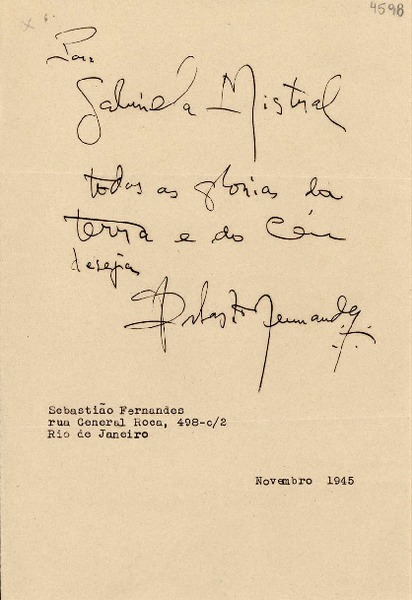 4598
Para
Gabriela Mistral
todas as glorias da
terra e do Céu
deseja
Sebastião Fernandes
Sebastião Fernandes
rua General Roca, 498-c/2
Rio de Janeiro
Novembro 1945